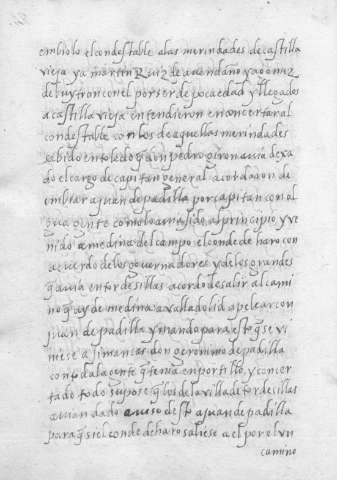 embiolo el condestable a las merindades de castilla
vieja y a martin Ruiz de avendaño y a gomez
de buytron con el por ser de poca edad y llegados
a castilla vieja entendieron en concertar al
condestable con los de aquellas merindades
sabido en toledo q don pedro giron avia dexa
do el cargo de capitan general acordaron de
embiar a juan de padilla por capitan con al
guna gente como lo avia sido al principio, y ve
nido a medina del campo el conde de haro con
acuerdo de los governadores y de los grandes
q avia en tordesillas acordo de salir al cami
no q ay de medina a valladolid a pelear con
juan de padilla y mando para esto q se vi
niese a simancas don geronimo de padilla
con toda la gente q tenia en portillo, y concer
tado todo supose q los de la villa de tordesillas
avian dado aviso desto a juan de padilla
para q si el conde de haro saliese a el por el un
camino